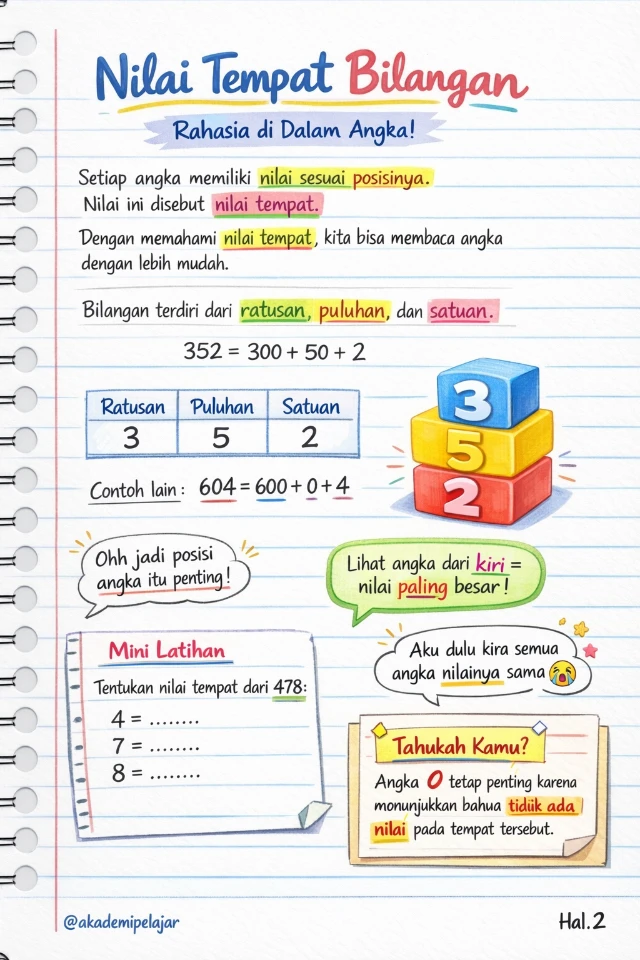 Nilai Tempat Bilangan
Rahasia di Dalam Angka!
Setiap angka memiliki nilai sesuai posisinya.
Nilai ini disebut nilai tempat.
Dengan memahami nilai tempat, kita bisa membaca angka
dengan lebih mudah.
Bilangan terdiri dari ratusan, puluhan, dan satuan.
352 = 300 + 50 + 2
Ratusan Puluhan Satuan
3 5 2
3
5
2
Contoh lain: 604 = 600 + 0 + 4
Ohh jadi posisi
angka itu penting!
Lihat angka dari kiri =
nilai paling besar!
Mini Latihan
Tentukan nilai tempat dari 478:
4 = ........
7 = ........
8 = ........
Aku dulu kira semua
angka nilainya sama 😭
Tahukah Kamu?
Angka 0 tetap penting karena
monunjukkan bahua tidiik ada
nilai pada tempat tersebut.
@akademipelajar
Hal.2